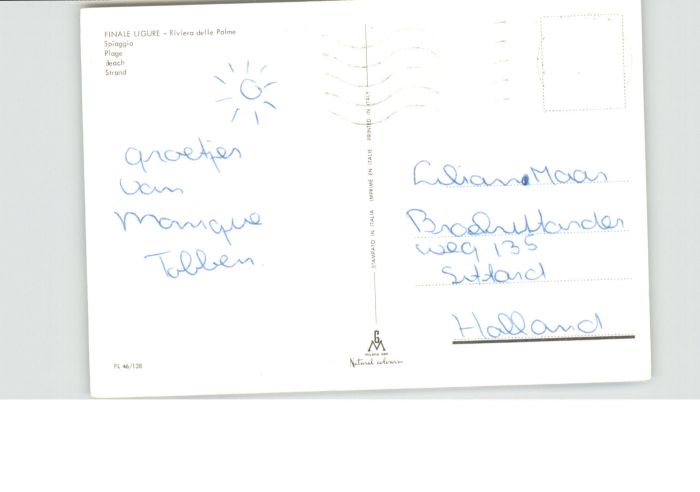 FINALE LIGURE - Riviera delle Palme
Spiaggia
Plage
Beach
Strand
groetjes
van
Monique
Tobben.
STAMPATO IN ITALIA IMPRIMÉ EN ITALIE PRINTED IN ITALY
Lilian Maas
weg 135
Sittard
Holland
Natural colours
FL 46/128